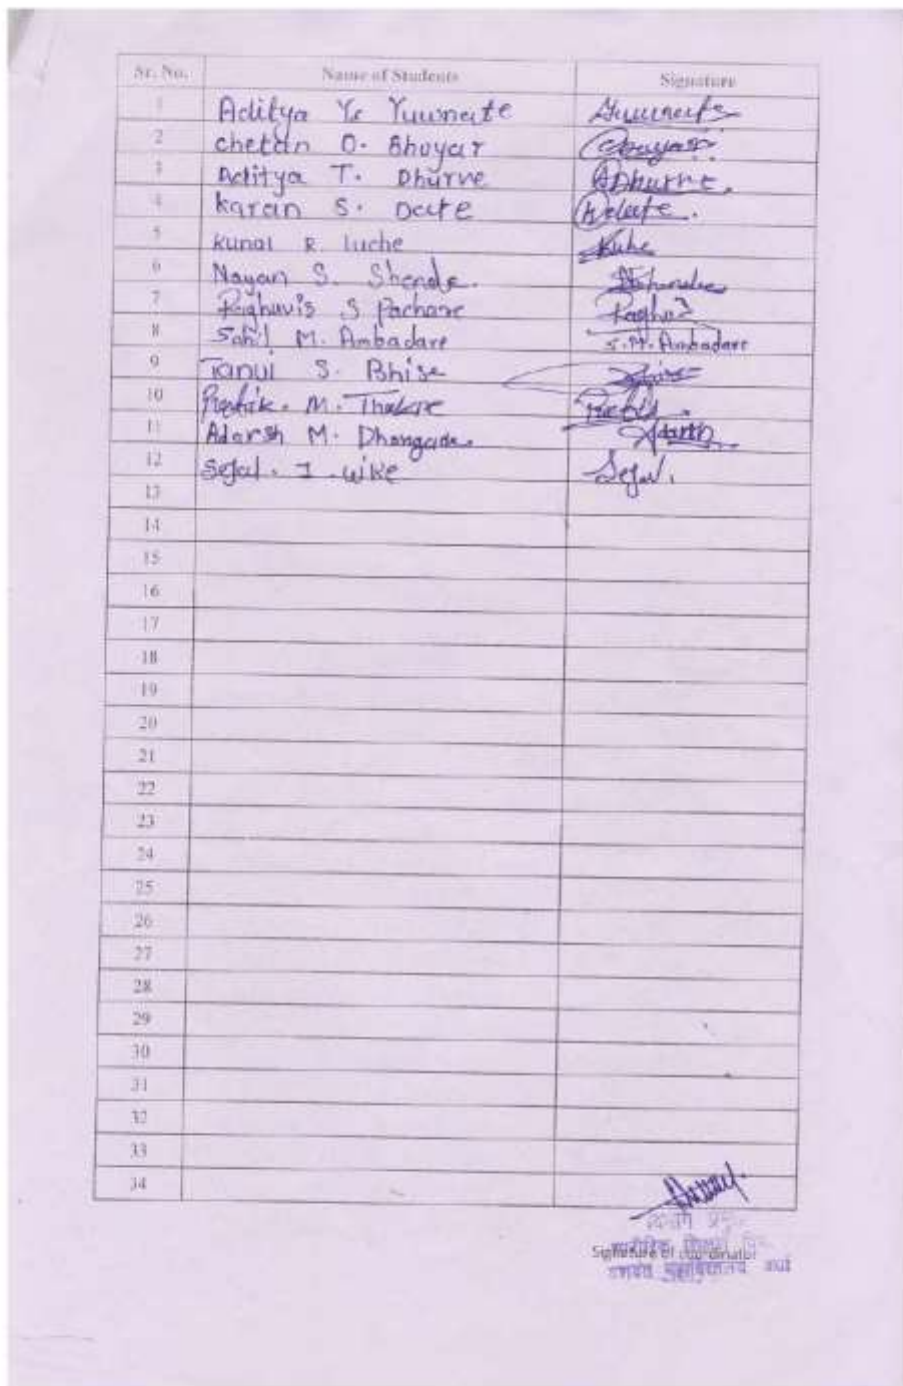 Sr. No. Name of Students Signature
1 Aditya Y. Yuwnate
2 chetan D. Bhoyar
3 Aditya T. Dhurve ADhurve.
4 Karan S. Date
5 Kunal R. luche
6 Nayan S. Shende.
7 Raghuvis S Pachare Raghu
8 Sahil M. Ambadare S.M. Ambadare
9 Tanul S. Bhise
10 Pratik. M. Thakre
11 Adarsh M. Dhongade. Adarsh
12 Sejal. I. wike Sejal.
13
14
15
16
17
18
19
20
21
22
23
24
25
26
27
28
29
30
31
32
33
34
Signature of coordinator